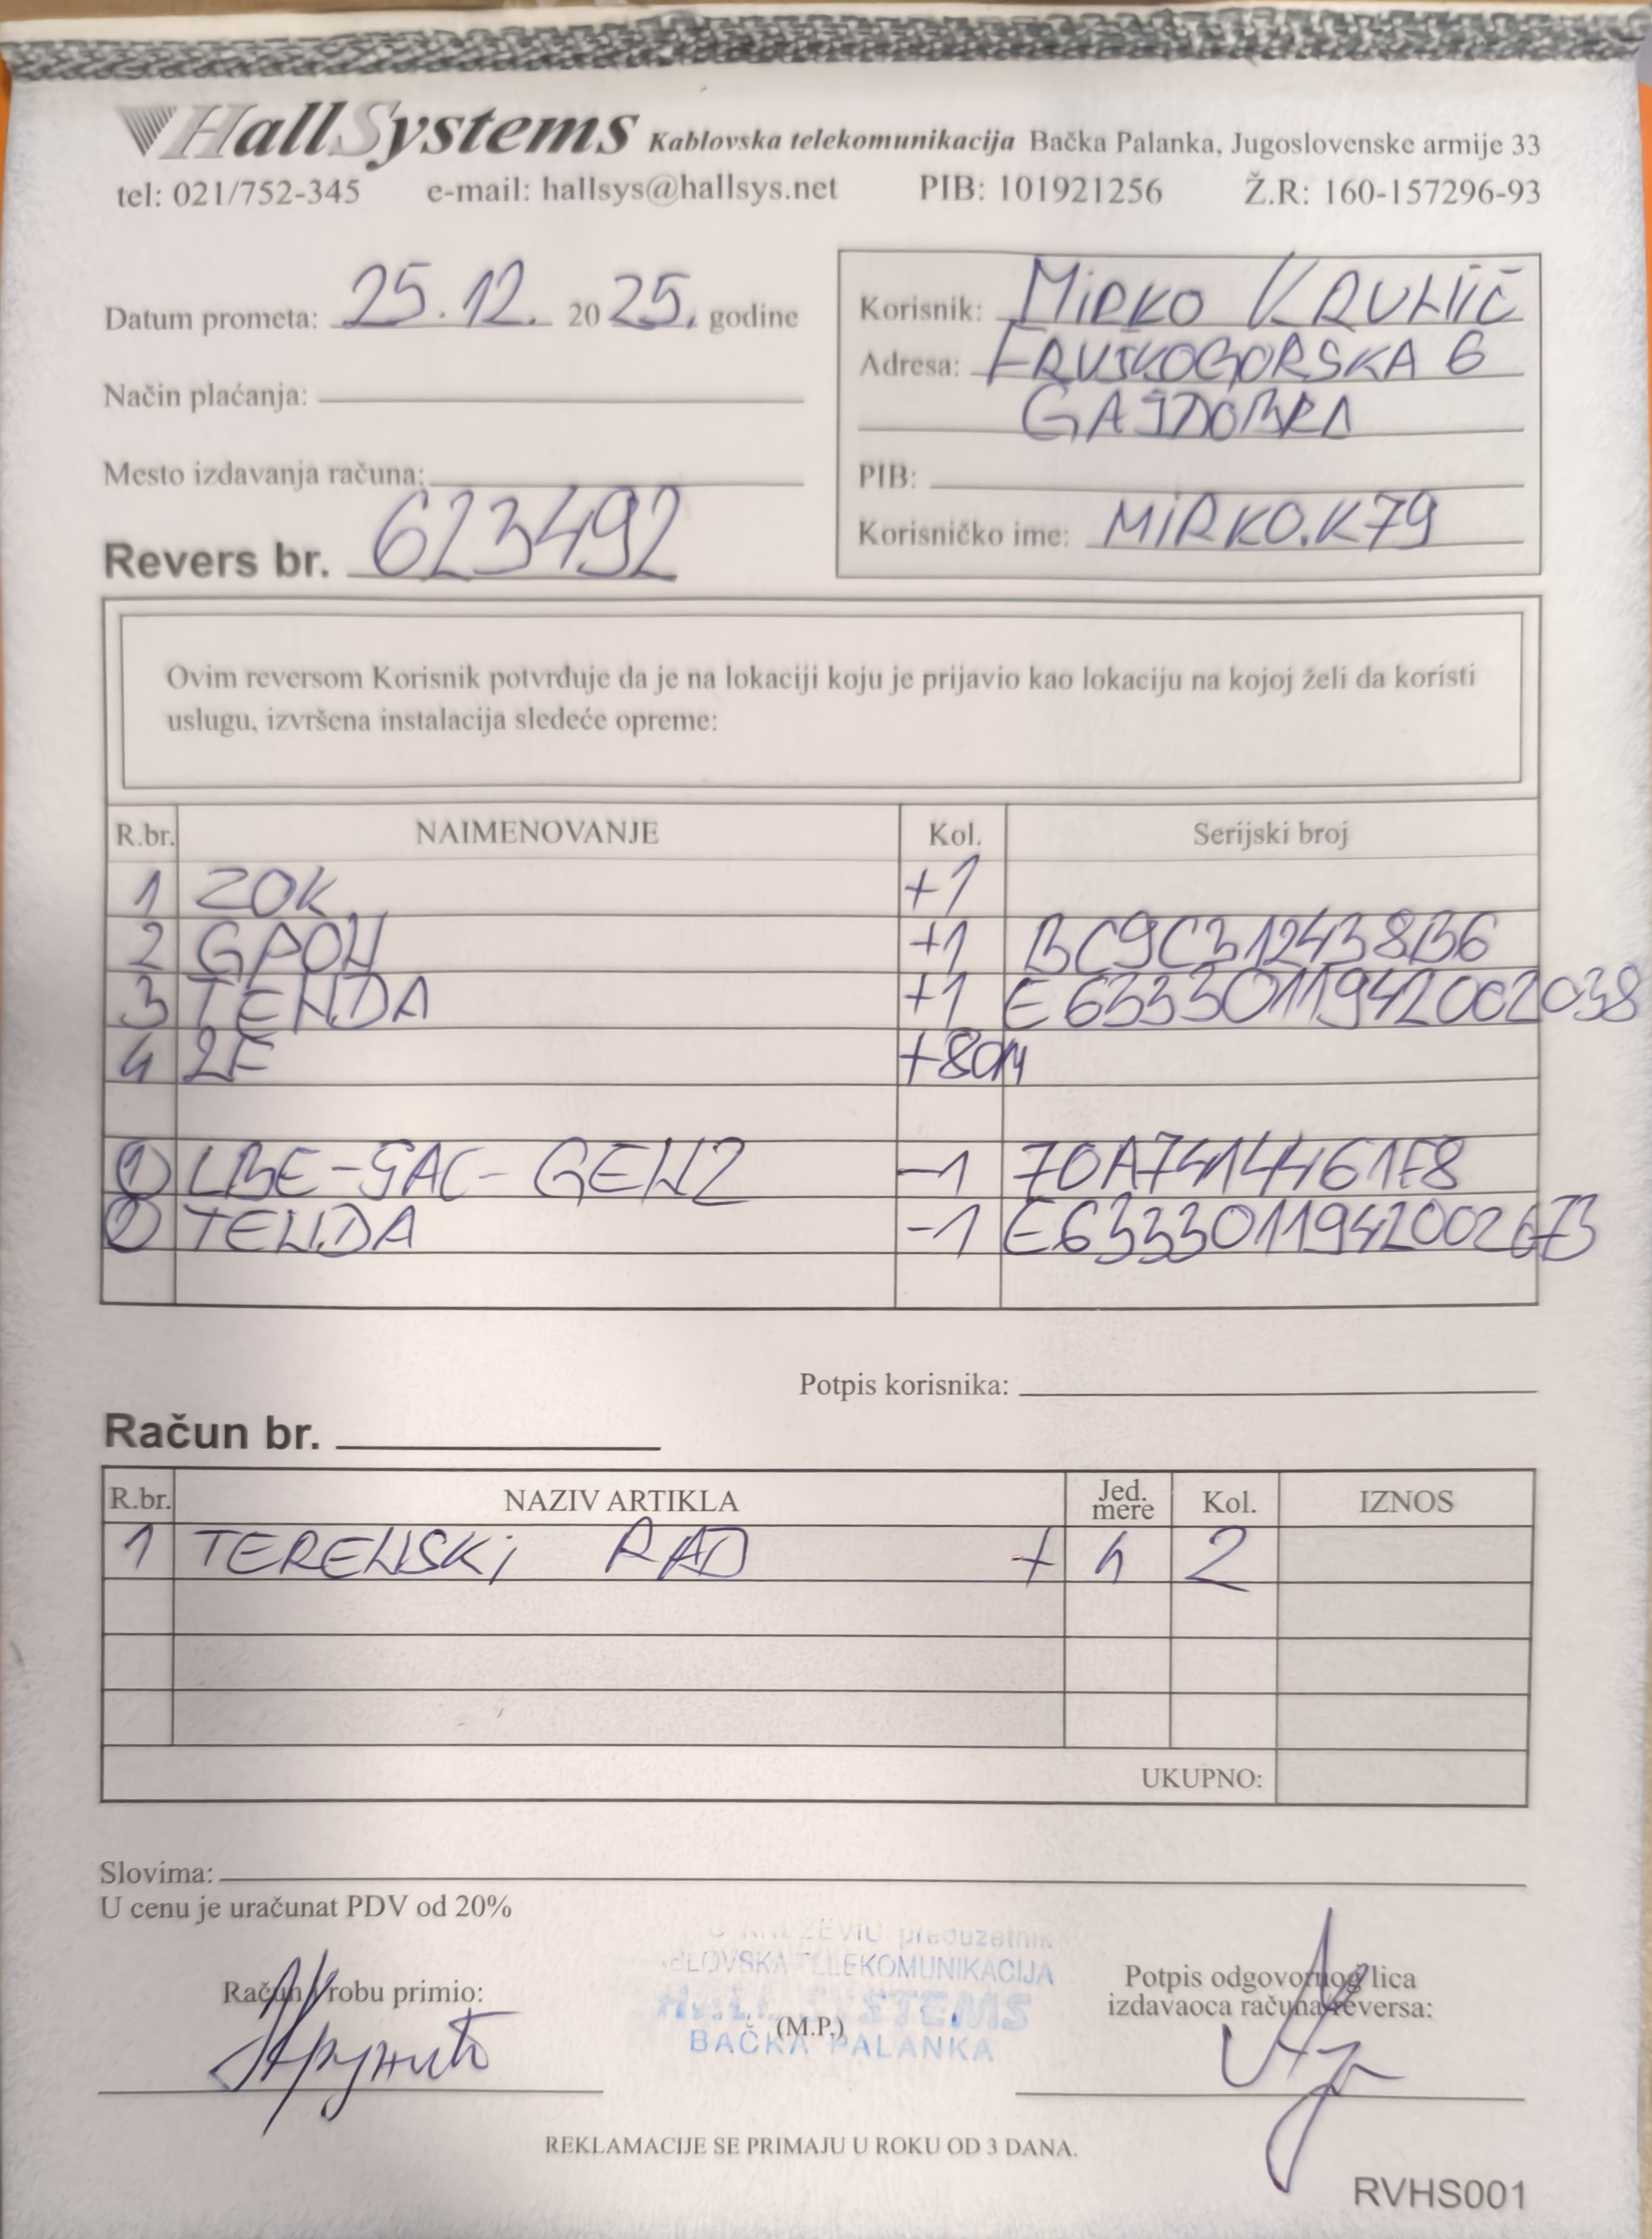 HallSystems Kablovska telekomunikacija Bačka Palanka, Jugoslovenske armije 33
tel: 021/752-345 e-mail: hallsys@hallsys.net PIB: 101921256 Ž.R: 160-157296-93
Datum prometa: 25.12. 20 25. godine
Način plaćanja:
Mesto izdavanja računa:
Revers br. 623492
Korisnik: MIRKO
Adresa: FRUŠKOGORSKA 6
GAJDOBRA
PIB:
Korisničko ime: MIRKO.K79
Ovim reversom Korisnik potvrđuje da je na lokaciji koju je prijavio kao lokaciju na kojoj želi da koristi
uslugu, izvršena instalacija sledeće opreme:
R.br. NAIMENOVANJE Kol. Serijski broj
1 ZOK +1
2 GPON +1 BC9C312438B6
3 TENDA +1 E6333011942002038
4 2F +80M
1 LBE-5AC-GEN2 -1 70A7414461F8
2 TENDA -1 E6333011942002673
Potpis korisnika:
Račun br.
R.br. NAZIV ARTIKLA Jed. mere Kol. IZNOS
1 TERENSKI RAD + h 2
UKUPNO:
Slovima:
U cenu je uračunat PDV od 20%
Račun / robu primio:
preduzetnik
KOMUNIKACIJA
SYSTEMS
(M.P.)
BAČKA PALANKA
Potpis odgovornog lica
izdavaoca računa/reversa:
REKLAMACIJE SE PRIMAJU U ROKU OD 3 DANA.
RVHS001